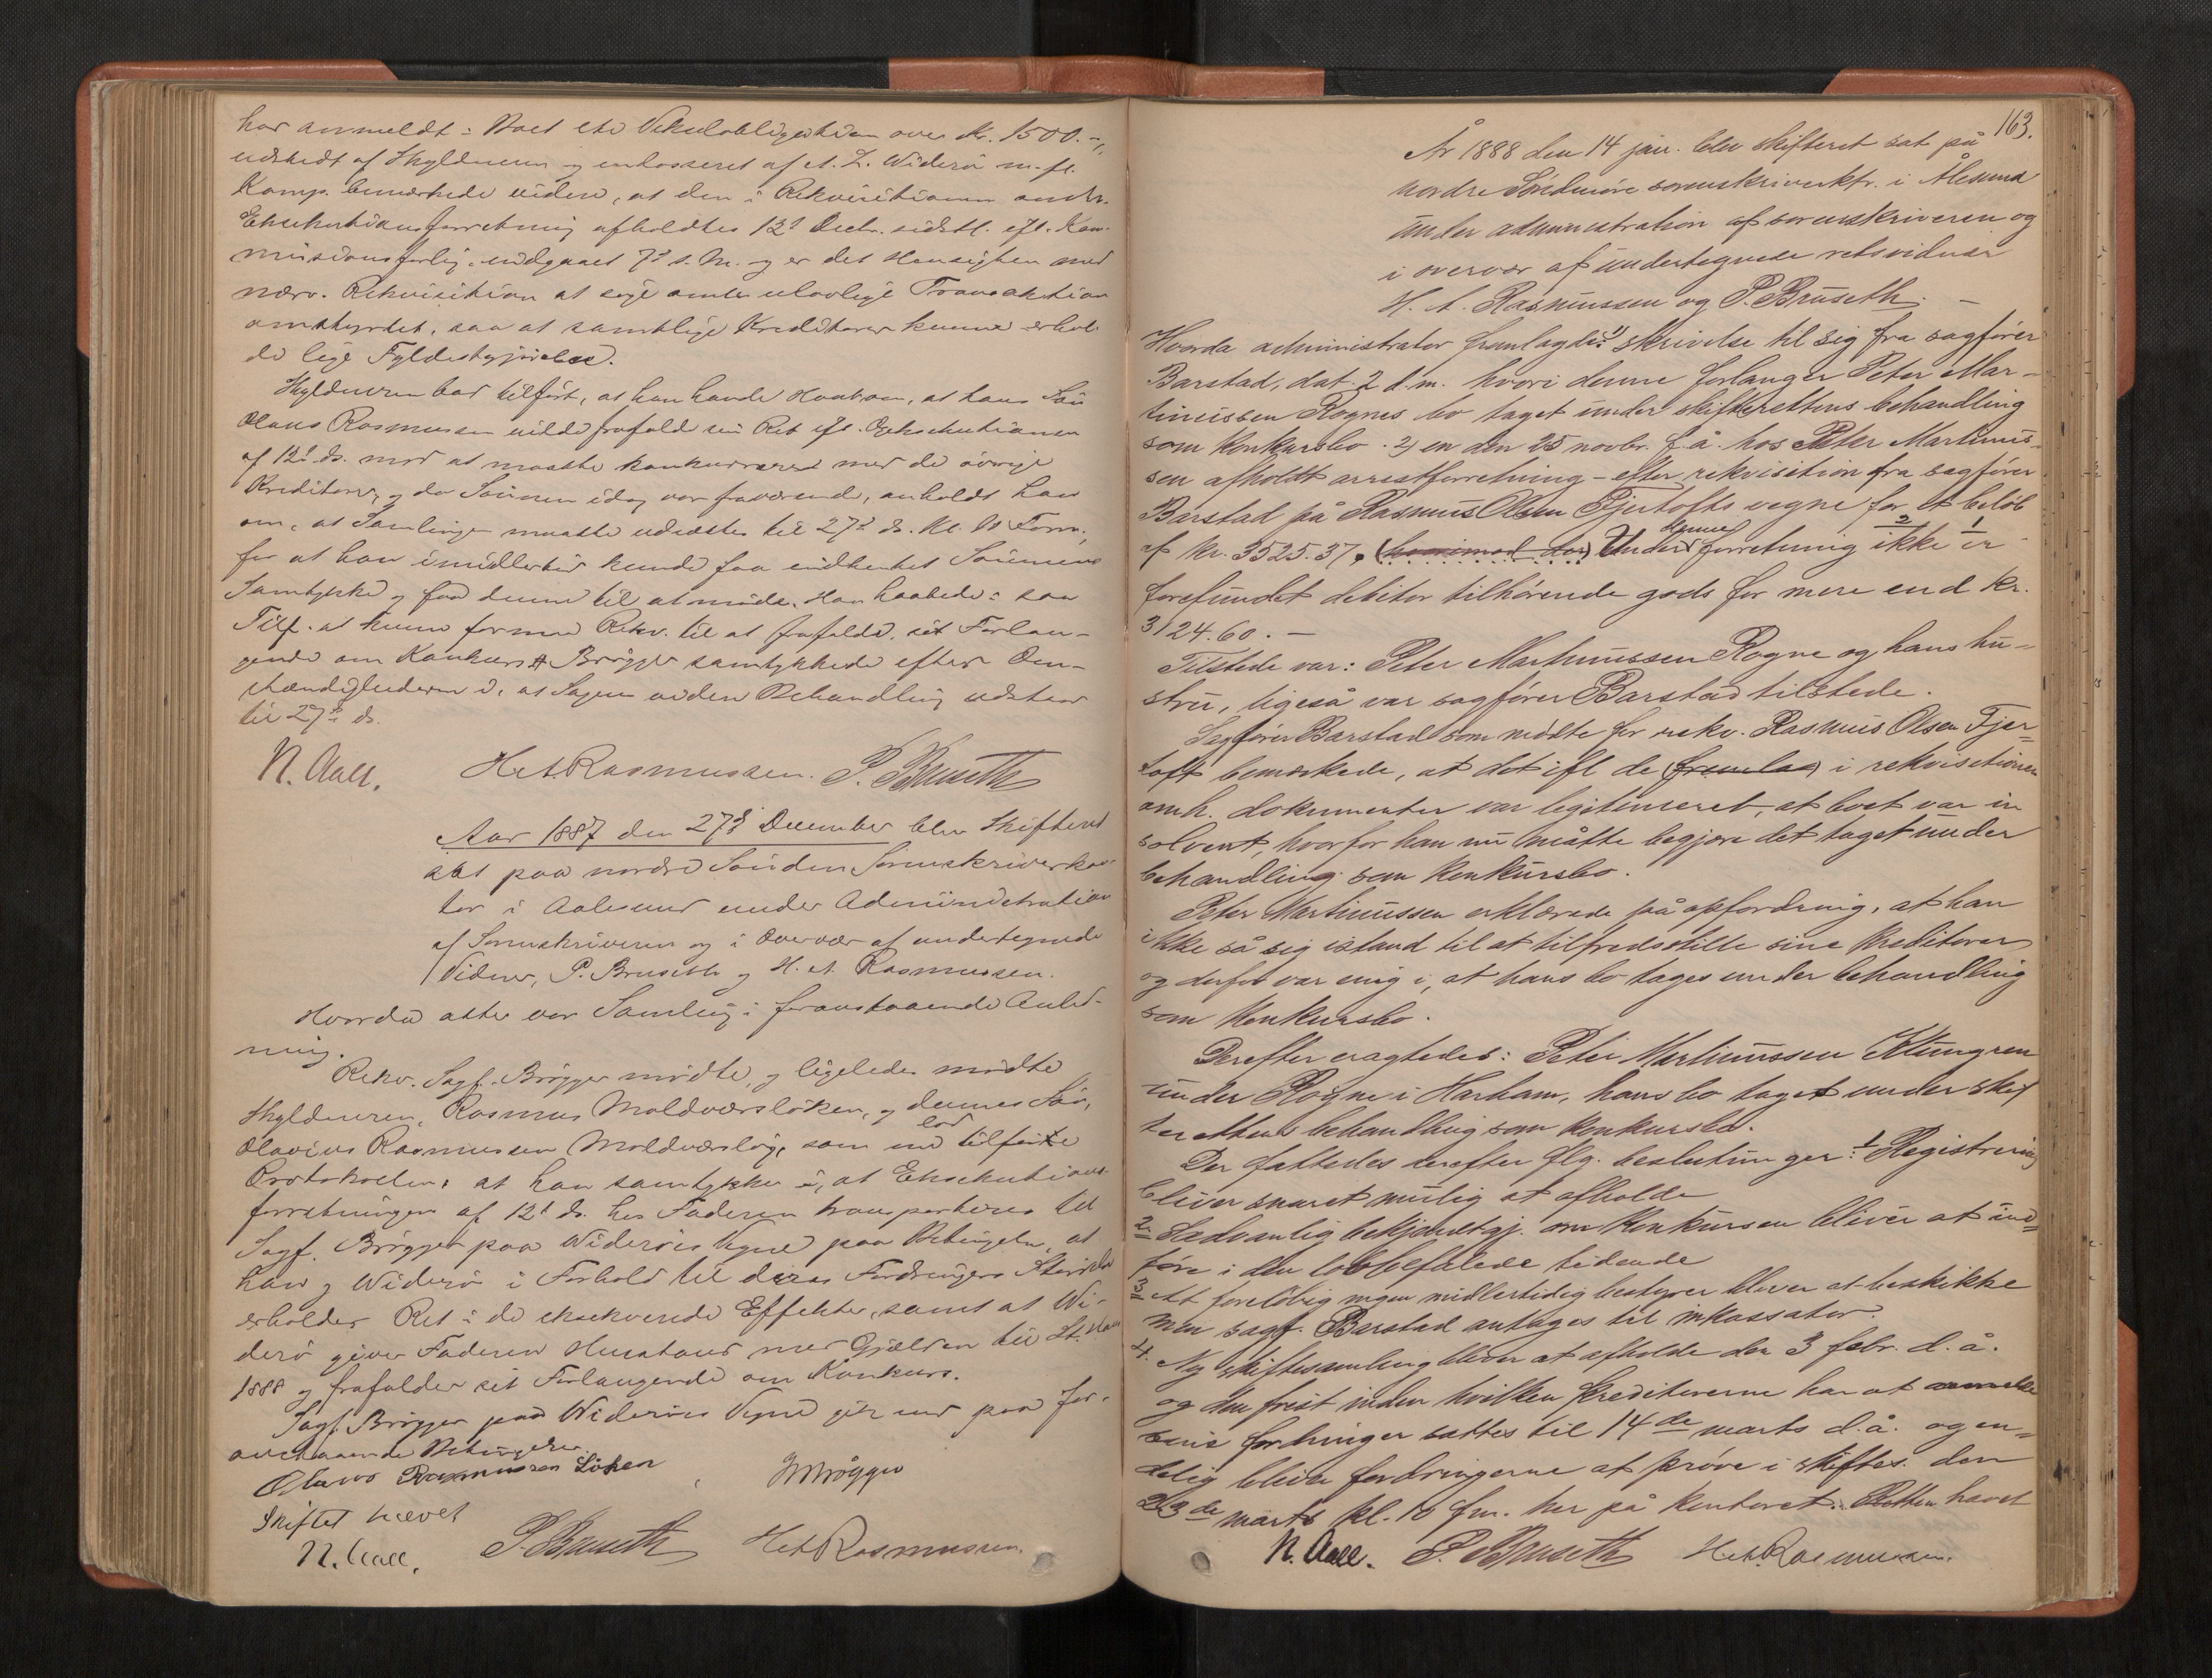 har anmeldt i Boet etc Vekselobligation over Kr. 1500.-,
udstedt af Skyldneren og endosseret af A. L. Widerö m. fl.
Komp. bemærkede videre, at den i Rekvisitionen omh.
Eksekutionsforretning afholdtes 12te Decbr. sidstl. efl. Kom-
missionsforlig indgaaet 7de s. M. og er det Hensigten med
nærv. Rekvisition at søge omh. ulovlige Transaktion
omstyrtet, saa at samtlige Kreditorer kunne erhol-
de lige Fyldestgjörelse.
Skyldneren bad tilfört, at han havde Haab om, at hans Sön
Olaus Rasmussen vilde frafalde sin Ret efl. Eksekutionen
af 12te ds. mod at maatte konkurrere med de övrige
Kreditorer, og da Sönnen idag var fraværende, anholdt han
om, at Samlingen maatte udsættes til 27de ds. Kl. 10 Form.,
for at han imidlertid kunde faa indhentet Sönnens
Samtykke og faa denne til at möde. Han haabede i saa
Tilf. at kunne formaa Rekv. til at frafalde sit Forlan-
gende om Konkurs. Brögger samtykkede efter Om-
stændighederne i, at Sagen uden Behandling udstaar
til 27de ds.
N. Aall. H. A. Rasmussen. P. Bruseth
Aar 1887 den 27de December blev Skifteret
sat paa nordre Söndm. Sorenskriverkon-
tor i Aalesund under Administration
af Sorenskriveren og i Overvær af undertegnede
Vidner, P. Bruseth og H. A. Rasmussen.
Hvorda atter var Samling i foranstaaende Anled-
ning.
Rekv. Sagf. Brögger mödte, og ligeledes mödte
Skyldneren, Rasmus Moldværslöken, og dennes Sön,
Olavius Rasmussen Moldværslög, som lod tilföre
Protokollen, at han samtykker i, at Eksekutions-
forretningen af 12te ds. hos Faderen transporteres til
Sagf. Brögger paa Widerös Vegne paa Betingelse, at
han og Widerö i Forhold til deres Fordringers Störrelse
erholder Ret i de eksekverede Effekter, samt at Wi-
derö giver Faderen Henstand med Gjælden til St. Hans
1888 og frafalder sit Forlangende om Konkurs.
Sagf. Brögger paa Widerös Vegne gik ind paa for-
anstaaende Betingelser.
Olavus Rasmussen Löken , Brögger
Skiftet hævet
N. Aall. P. Bruseth H. A. Rasmussen.
163.
År 1888 den 14 jan. blev skifteret sat på
nordre Söndmöre sorenskriverktr. i Ålesund
under administration af sorenskriveren og
i overvær af undertegnede retsvidner
H. A. Rasmussen og P. Bruseth. –
Hvorda administrator fremlagde: 1) skrivelse til sig fra sagförer
Barstad, dat. 2 d. m. hvori denne forlanger Peter Mar-
tinussen Rognes bo taget under skifterettens behandling
som konkursbo. 2) en den 25 novbr. f. å. hos Peter Martinus-
sen afholdt arrestforretning – efter rekvisition fra sagförer
Barstad på Rasmus Olsen Fjertofts vegne for et belöb
af kr. 3525.37. (hvorimod der) Under denne forretning ikke 2 er 1
forefundet debitor tilhörende gods for mere end kr.
3124.60. –
Tilstede var: Peter Martinussen Rogne og hans hu-
stru, ligeså var sagförer Barstad tilstede.
Sagförer Barstad som mödte for rekv. Rasmus Olsen Fjer-
toft bemærkede, at det ifl de (fremlag) i rekvisitionen
omh. dokumenter var legitimeret, at boet var in
solvent, hvorfor han nu måtte begjære det taget under
behandling som konkursbo.
Peter Martinussen erklærede på opfordring, at han
ikke så sig istand til at tilfredsstille sine kreditorer
og derfor var enig i, at hans bo tages under behandling
som konkursbo.
Derefter eragtedes: Peter Martinussen Klungren
under Rogne i Harham, hans bo taget under skif
terettens behandling som konkursbo.
Der fattedes derefter flg. beslutninger: 1 Registrering
bliver snarest mulig at afholde
2. Sædvanlig bekjendtgj. om konkursen bliver at ind-
före i den lovbefalede tidende
3 At forelöbig ingen midlertidig bestyrer bliver at beskikke
men sagf. Barstad antages til inkassator.
4. Ny skiftesamling bliver at afholde den 3 febr. d. å.
og den frist inden hvilken kreditorerne har at anmelde
sine fordringer sattes til 14de marts d. å. og en-
delig bliver fordringerne at pröve i skiftes. den
23de marts kl. 10 fm. her på kontoret. Retten hævet
N. Aall. P. Bruseth H. A. Rasmussen.